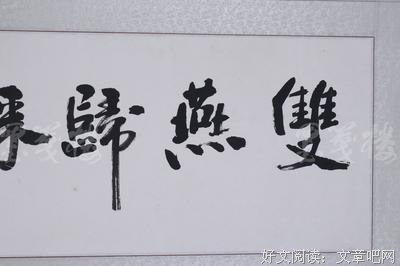 雙燕歸來
好文阅读：文章吧网